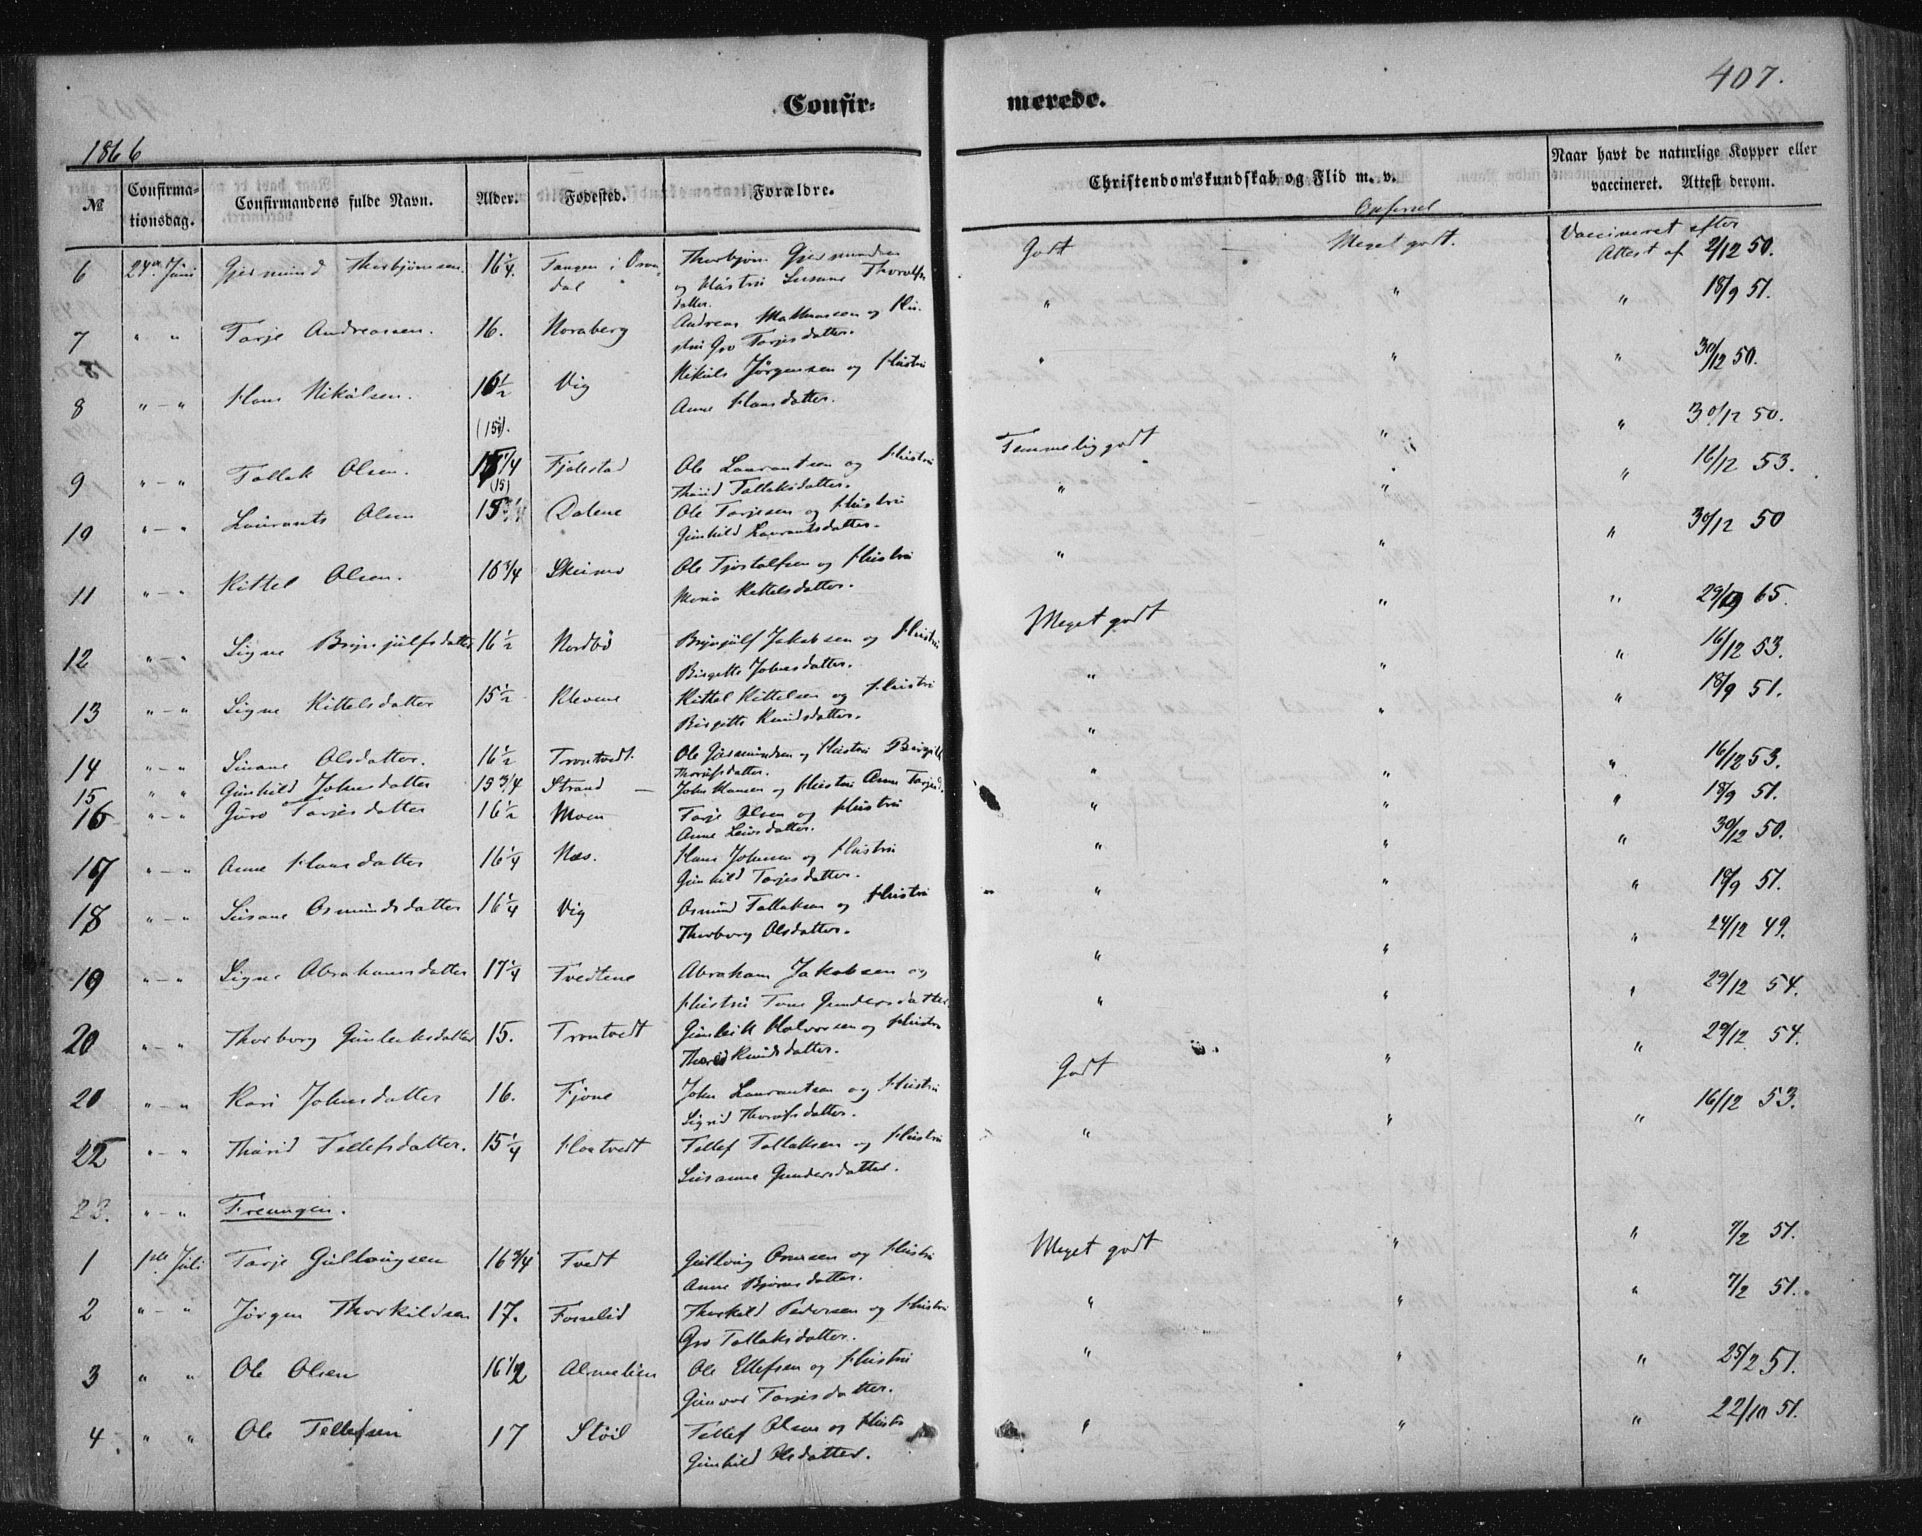 407.
Confir-
merede.
1866
№
Confirma-
tionsdag.
Confirmandens fulde Navn.
Alder.
Fødested.
Forældre.
Christendomskundskab og Flid m. v.
Naar havt de naturlige Kopper eller
vaccineret. Attest derom.
Opførsel
6 24de Juni Gjermund Thorbjørnsen. 16 1/4. Tangen i
dal Thorbjørn Gjermundsen
og Hustru Susane Thorolfs
datter. Godt Meget godt. Vaccineret efter
Attest af 2/12 50.
7 " " Tarje Andreassen. 16. Noraberg Andreas Mathiassen og Hu-
stru Gro Tarjesdatter. " " " 18/9 51.
8 " - " Hans Nikulsen. 16 1/2 Vig Nikuls Jørgensen og Hustru
Anne Hansdatter. " " " 30/12 50.
9 " - " Tallak Olsen. Fjalestad Ole Laurantsen og Hustru
Thorid Tallaksdatter. Temmelig godt " " 30/12 50.
10 " - " Laurants Olsen (15) Dalene Ole Tarjesen og Hustru
Gunhild Laurantsdatter. " " " 16/12 53.
11 " - " Kittel Olsen. 16 3/4 Skeimo Ole Tjøstolfsen og Hustru
Maria Kittelsdatter. " " " 30/12 50
12 " - " Signe Brynjulfsdatter 16 1/2 Nordbø Brynjulf Jakobsen og Hustru
Birgitte Johnsdatter. Meget godt " " 65.
13 " - " Signe Kittelsdatter 15 1/2 Klevene Kittel Kittelsen og Hustru
Birgitte Knudsdatter. " " " 16/12 53.
14 " - " Susane Olsdatter. 16 1/2 Trontvedt. Ole Gjermundsen og Hustru
Thorufsdatter. " " " 18/9 51.
15 " " Gunhild Johnsdatter 15 3/4 Strand John Hansen og Hustru Anne Tarjesd. " " " 16/12 53.
16 " - " Guro Tarjesdatter 16 1/2 Moen Tarje Olsen og Hustru
Anne Leivsdatter. " " " 18/9 51.
17 " - " Anne Hansdatter 16 1/4 Næs. Hans Johnsen og Hustru
Gunhild Tarjesdatter. " " " 30/12 50.
18 " - " Susane Osmundsdatter 16 1/4 Vig Osmund Tallaksen og Hustru
Thorborg Olsdatter. " " " 18/9 51.
19 " - " Signe Abrahamsdatter 17 1/4 Tvedtene Abraham Jakobsen og
Hustru Tone Gundersdatter " " " 24/12 49.
20 " - " Thorborg Gunleiksdatter 15. Trontvedt Gunleik Halvorsen og Hustru
Thorid Knudsdatter. " " " 29/12 54.
20 " - " Kari Johnsdatter 16. Fjone John Laurantsen og Hustru
Sigrid Thorufsdatter. Godt " " 29/12 54.
22 " - " Thorid Tellefsdatter. 15 1/4 Haatvedt Tellef Tallaksen og Hustru
Susanne Gundersdatter. " " " 16/12 53.
23. " - " Treungen.
1 1ste Juli Tarje Gulleugsen 16 3/4 Tvedt og Hustru
Anne Bjørnsdatter. Meget godt " " 7/2 51.
2 " - " Jørgen Thorkildsen 17. Fosselid Thorkild Pedersen og Hustru
Gro Tallaksdatter. " " " 7/2 51.
3 " " Ole Olsen 16 1/2 Almelien Ole Ellefsen og Hustru
Gunvor Tarjesdatter. " " " 25/2 51.
4 " " Ole Tellefsen 17 Støil Tellef Olsen og Hustru
Gunhild Olsdatter. " " " 22/10 51.